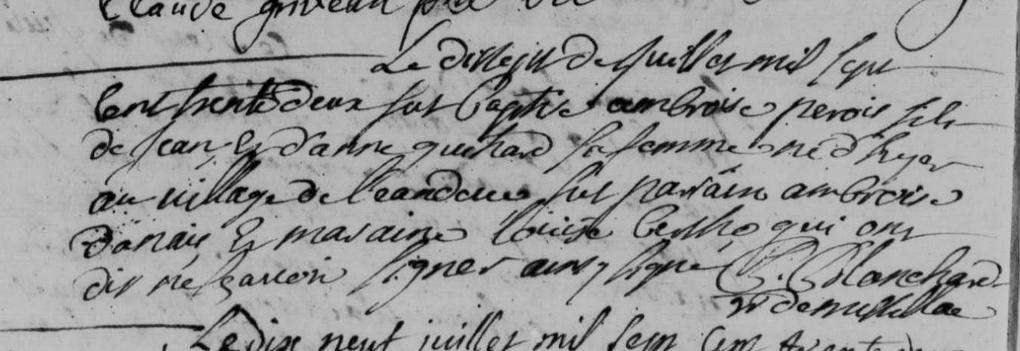 Claude
Le dissept de Juillet mil sept
cent trente deux fut baptisé ambroise perois fils
de Jean Et d'anne guichard sa femme né d'hyer
au village de fut parain ambroise
danais Et maraine louise bertho qui ont
dit ne scavoir signer ainsy signé P. Blanchard
vr de nivillac
Le dix neuf juillet mil sept cent trente deux